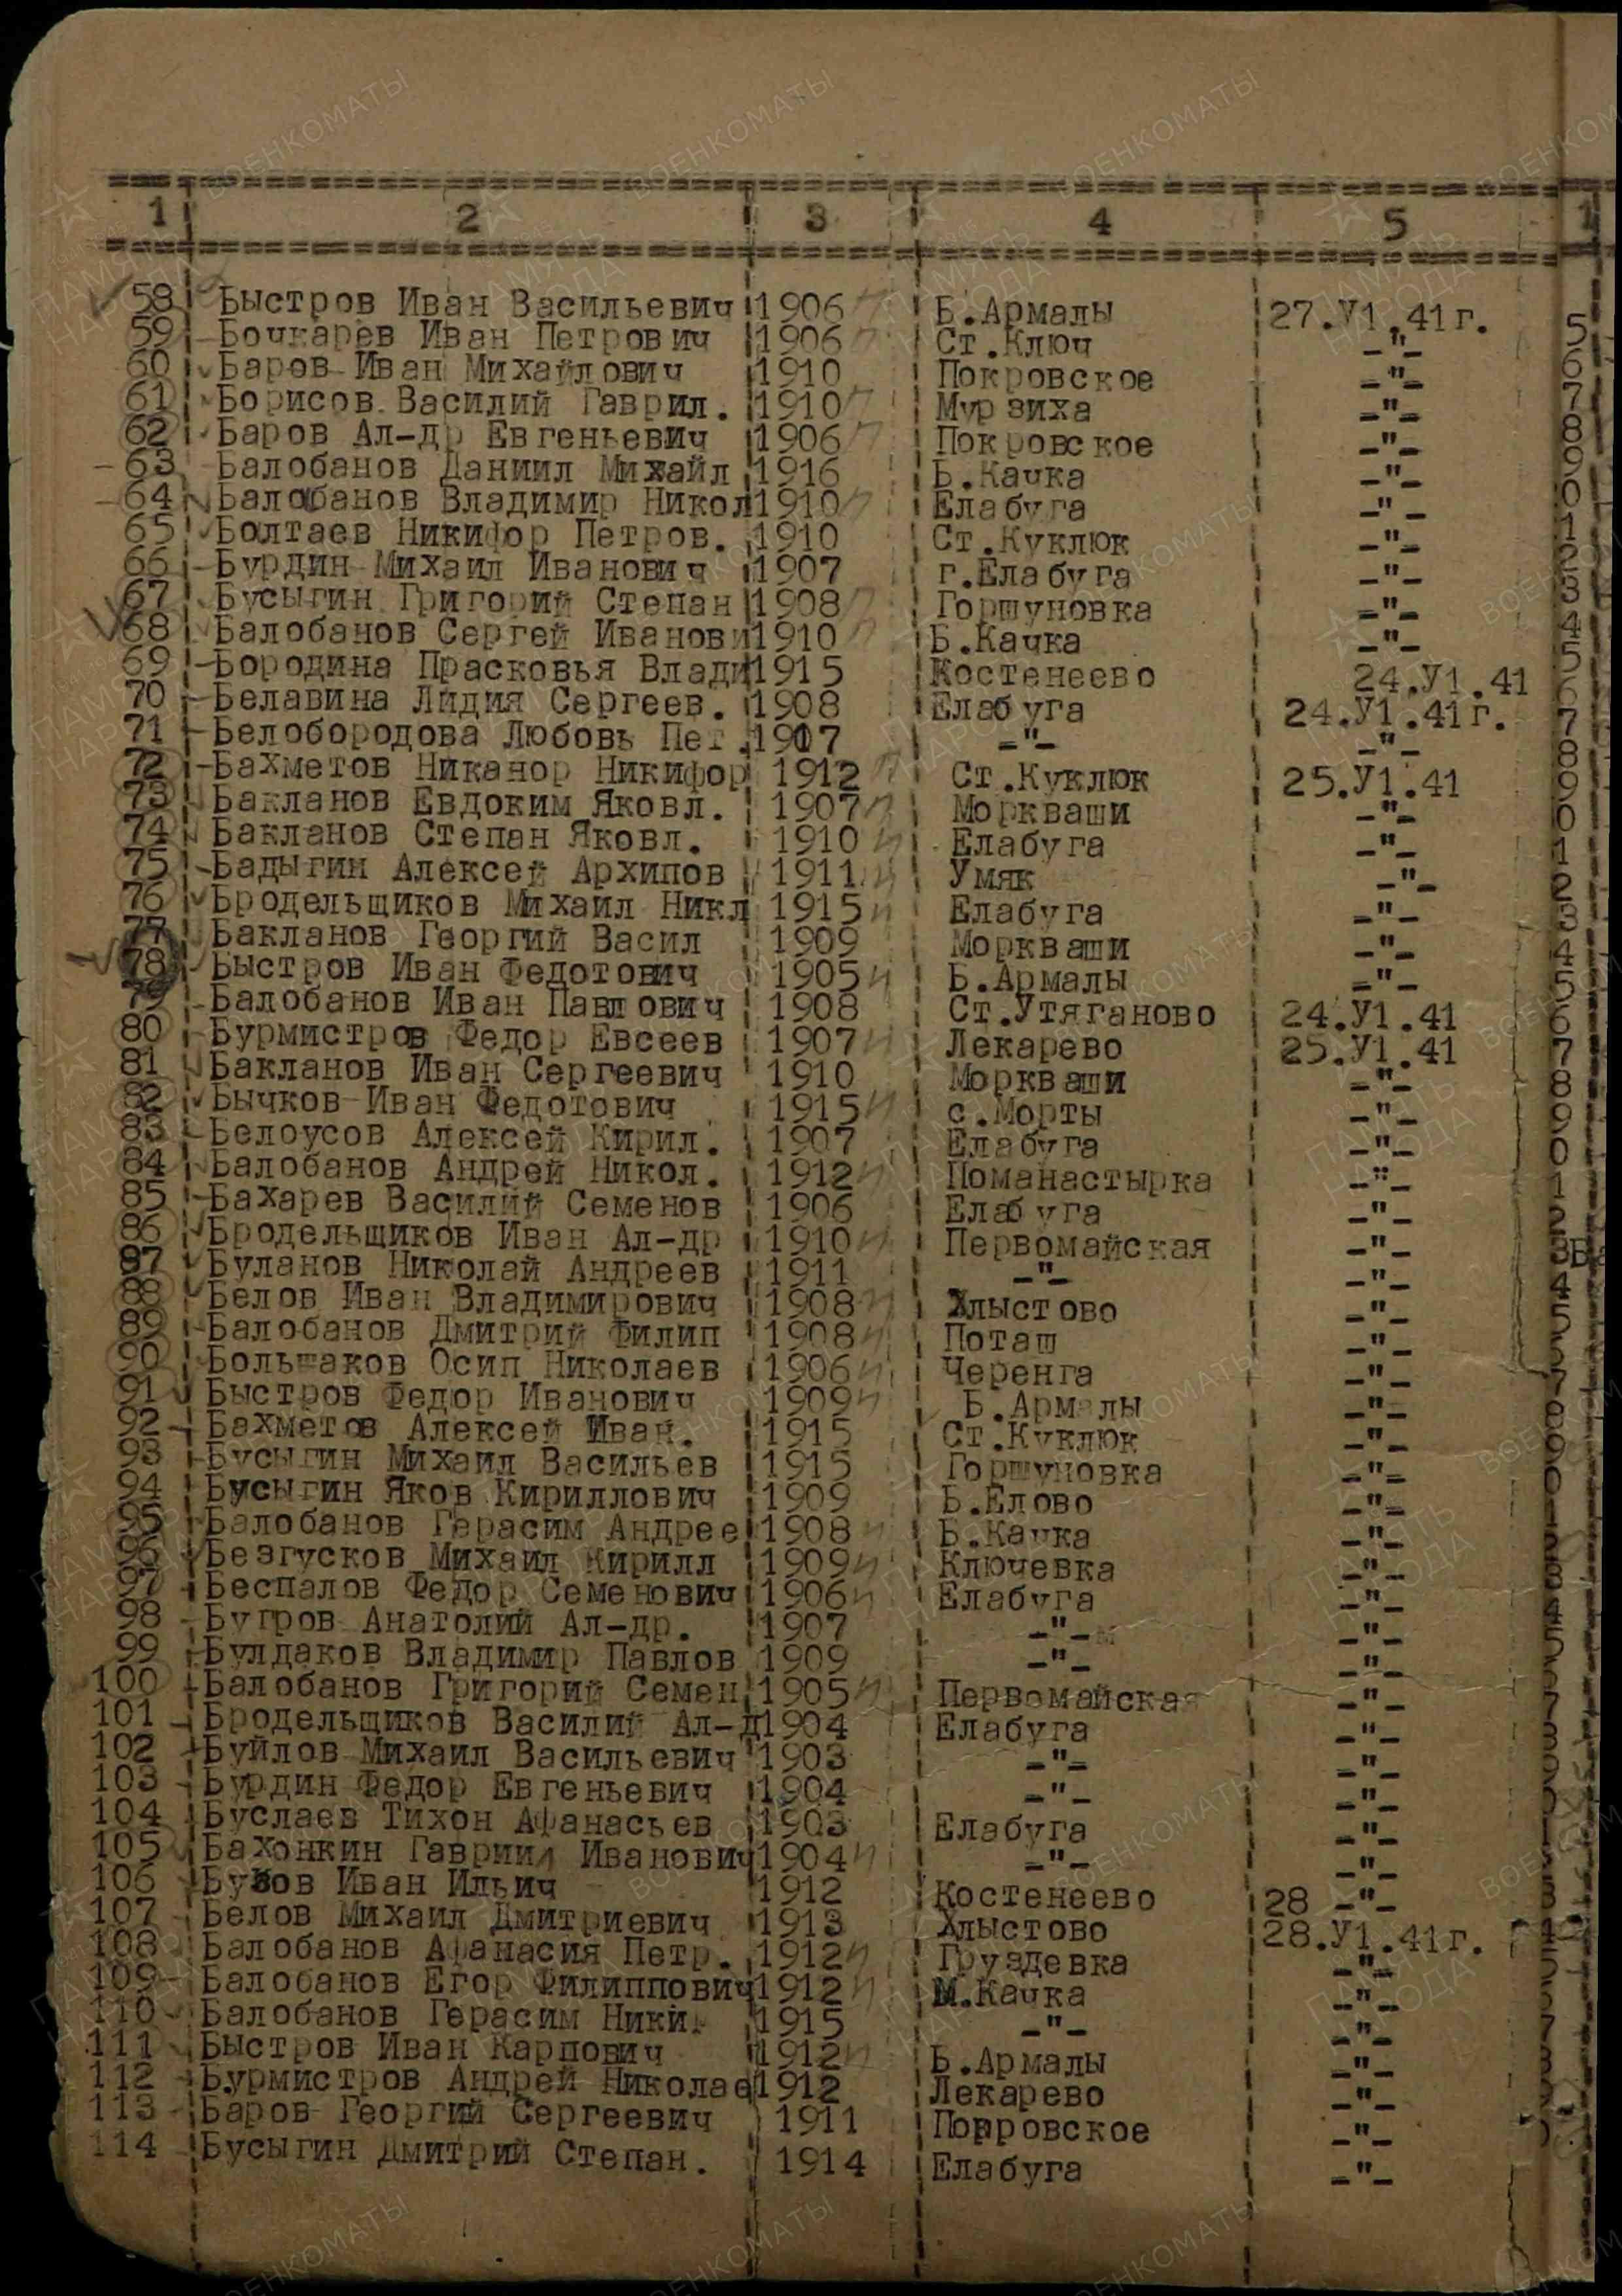 1 2 3 4 5
58 Быстров Иван Васильевич 1906 Б.Армалы 27.У1.41г.
59 Бочкарев Иван Петрович 1906 Ст.Ключ -"-
60 Баров Иван Михайлович 1910 Покровское -"-
61 Борисов Василий Гаврил. 1910 Мурзиха -"-
62 Баров Ал-др Евгеньевич 1906 Покровское -"-
63 Балобанов Даниил Михайл 1916 Б.Качка -"-
64 Балобанов Владимир Никол 1910 Елабуга -"-
65 Болтаев Никифор Петров. 1910 Ст.Куклюк -"-
66 Бурдин Михаил Иванович 1907 г.Елабуга -"-
67 Бусыгин Григорий Степан 1908 Горшуновка -"-
68 Балобанов Сергей Иванови 1910 Б.Качка -"-
69 Бородина Прасковья Влади 1915 Костенеево 24.У1.41
70 Белавина Лидия Сергеев. 1908 Елабуга 24.У1.41г.
71 Белобородова Любовь Пет. 1907 -"- -"-
72 Бахметов Никанор Никифор 1912 Ст.Куклюк 25.У1.41
73 Бакланов Евдоким Яковл. 1907 Моркваши -"-
74 Бакланов Степан Яковл. 1910 Елабуга -"-
75 Бадыгин Алексей Архипов 1911 Умяк -"-
76 Бродельщиков Михаил Никл 1915 Елабуга -"-
77 Бакланов Георгий Васил 1909 Моркваши -"-
78 Быстров Иван Федотович 1905 Б.Армалы -"-
79 Балобанов Иван Павлович 1908 Ст.Утяганово 24.У1.41
80 Бурмистров Федор Евсеев 1907 Лекарево 25.У1.41
81 Бакланов Иван Сергеевич 1910 Моркваши -"-
82 Бычков Иван Федотович 1915 с.Морты -"-
83 Белоусов Алексей Кирил. 1907 Елабуга -"-
84 Балобанов Андрей Никол. 1912 Поманастырка -"-
85 Бахарев Василий Семенов 1906 Елабуга -"-
86 Бродельщиков Иван Ал-др 1910 Первомайская -"-
87 Буланов Николай Андреев 1911 -"- -"-
88 Белов Иван Владимирович 1908 Хлыстово -"-
89 Балобанов Дмитрий Филип 1908 Поташ -"-
90 Большаков Осип Николаев 1906 Черенга -"-
91 Быстров Федор Иванович 1909 Б.Армалы -"-
92 Бахметов Алексей Иван. 1915 Ст.Куклюк -"-
93 Бусыгин Михаил Васильев 1915 Горшуновка -"-
94 Бусыгин Яков Кириллович 1909 Б.Елово -"-
95 Балобанов Герасим Андрее 1908 Б.Качка -"-
96 Безгусков Михаил Кирилл 1909 Ключевка -"-
97 Беспалов Федор Семенович 1906 Елабуга -"-
98 Бугров Анатолий Ал-др. 1907 -"- -"-
99 Булдаков Владимир Павлов 1909 -"- -"-
100 Балобанов Григорий Семен 1905 Первомайская -"-
101 Бродельщиков Василий Ал-д 1904 Елабуга -"-
102 Буйлов Михаил Васильевич 1903 -"- -"-
103 Бурдин Федор Евгеньевич 1904 -"- -"-
104 Буслаев Тихон Афанасьев 1903 Елабуга -"-
105 Бахонкин Гавриил Иванович 1904 -"- -"-
106 Бузов Иван Ильич 1912 Костенеево 28 -"-
107 Белов Михаил Дмитриевич 1913 Хлыстово 28.У1.41г.
108 Балобанов Афанасия Петр. 1912 Груздевка -"-
109 Балобанов Егор Филиппович 1912 М.Качка -"-
110 Балобанов Герасим 1915 -"- -"-
111 Быстров Иван Карпович 1912 Б.Армалы -"-
112 Бурмистров Андрей Николае 1912 Лекарево -"-
113 Баров Георгий Сергеевич 1911 Покровское -"-
114 Бусыгин Дмитрий Степан. 1914 Елабуга -"-